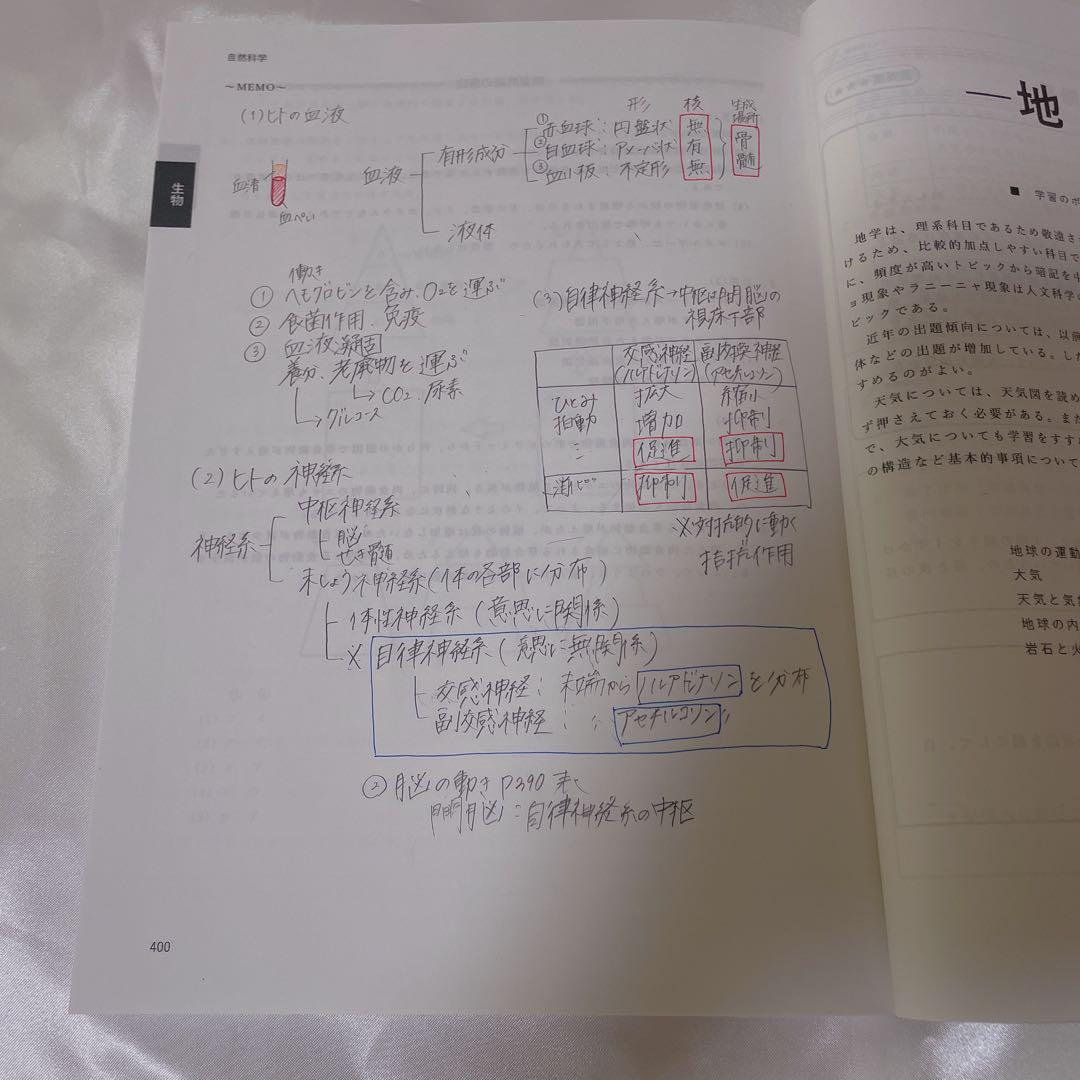 自然科学
~MEMO~
(1)ヒトの血液
形 核 生成場所
血液 有形成分 ①赤血球:円盤状 無 骨髄
②白血球:アメーバ状 有
③血小板:不定形 無
液体
血清
血ぺい
生物
働き
① ヘモグロビンを含み、O2を運ぶ
② 食菌作用、免疫
③ 血液凝固
養分、老廃物を運ぶ
CO2、尿素
グルコース
(2)ヒトの神経系
神経系 中枢神経系
脳
せき髄
末しょう神経系(体の各部に分布)
体性神経系(意思に関係)
※ 自律神経系(意思に無関係)
交感神経:末端からノルアドレナリンを分布
副交感神経: 〃 アセチルコリン 〃
② 脳の働き P390 表
間脳:自律神経系の中枢
(3)自律神経系→中枢は間脳の
視床下部
交感神経 副交換神経
(ノルアドレナリン) (アセチルコリン)
ひとみ 拡大 縮小
拍動 増加 抑制
促進 抑制
抑制 促進
※対抗的に働く
拮抗作用
400
一地
■ 学習のポ
地学は、理系科目であるため敬遠さ
けるため、比較的加点しやすい科目で
に、頻度が高いトピックから暗記を中
ョ現象やラニーニャ現象は人文科学の
ピックである。
近年の出題傾向については、以前
体などの出題が増加している。した
すめるのがよい。
天気については、天気図を読め
ず押さえておく必要がある。また
で、大気についても学習をすす
の構造など基本的事項について
地球の運動
大気
天気と気
地球の内
岩石と火